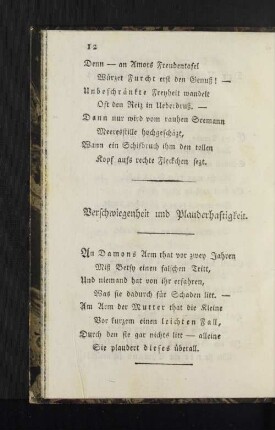 12
Denn — an Amors Freudentafel
Würzet Furcht erst den Genuß! —
Unbeschränkte Freyheit wandelt
Oft den Reiz in Ueberdruß. —
Dann nur wird vom rauhen Seemann
Meeresstille hochgeschäzt,
Wann ein Schifbruch ihm den tollen
Kopf aufs rechte Fleckchen sezt.
Verschwiegenheit und Plauderhaftigkeit.
An Damons Arm that vor zwey Jahren
Miß Betsy einen falschen Tritt,
Und niemand hat von ihr erfahren,
Was sie dadurch für Schaden litt. —
Am Arm der Mutter that die Kleine
Vor kurzem einen leichten Fall,
Durch den sie gar nichts litt — alleine
Sie plaudert dieses überall.